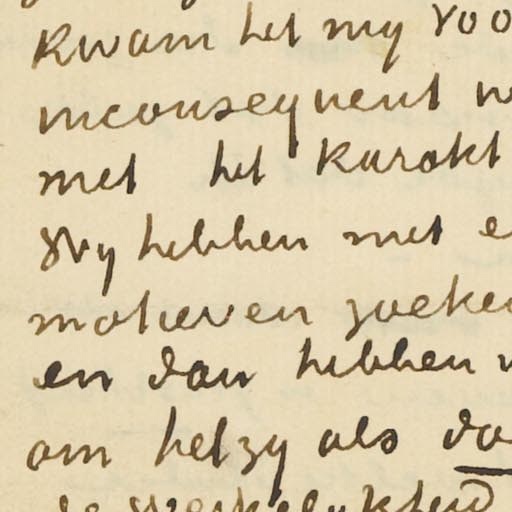 kwam het my voo
inconsequent w
met het karakt
Wy hebben met e
motieven zoeken
en dan hebben w
om hetzy als da
de werkelykheid